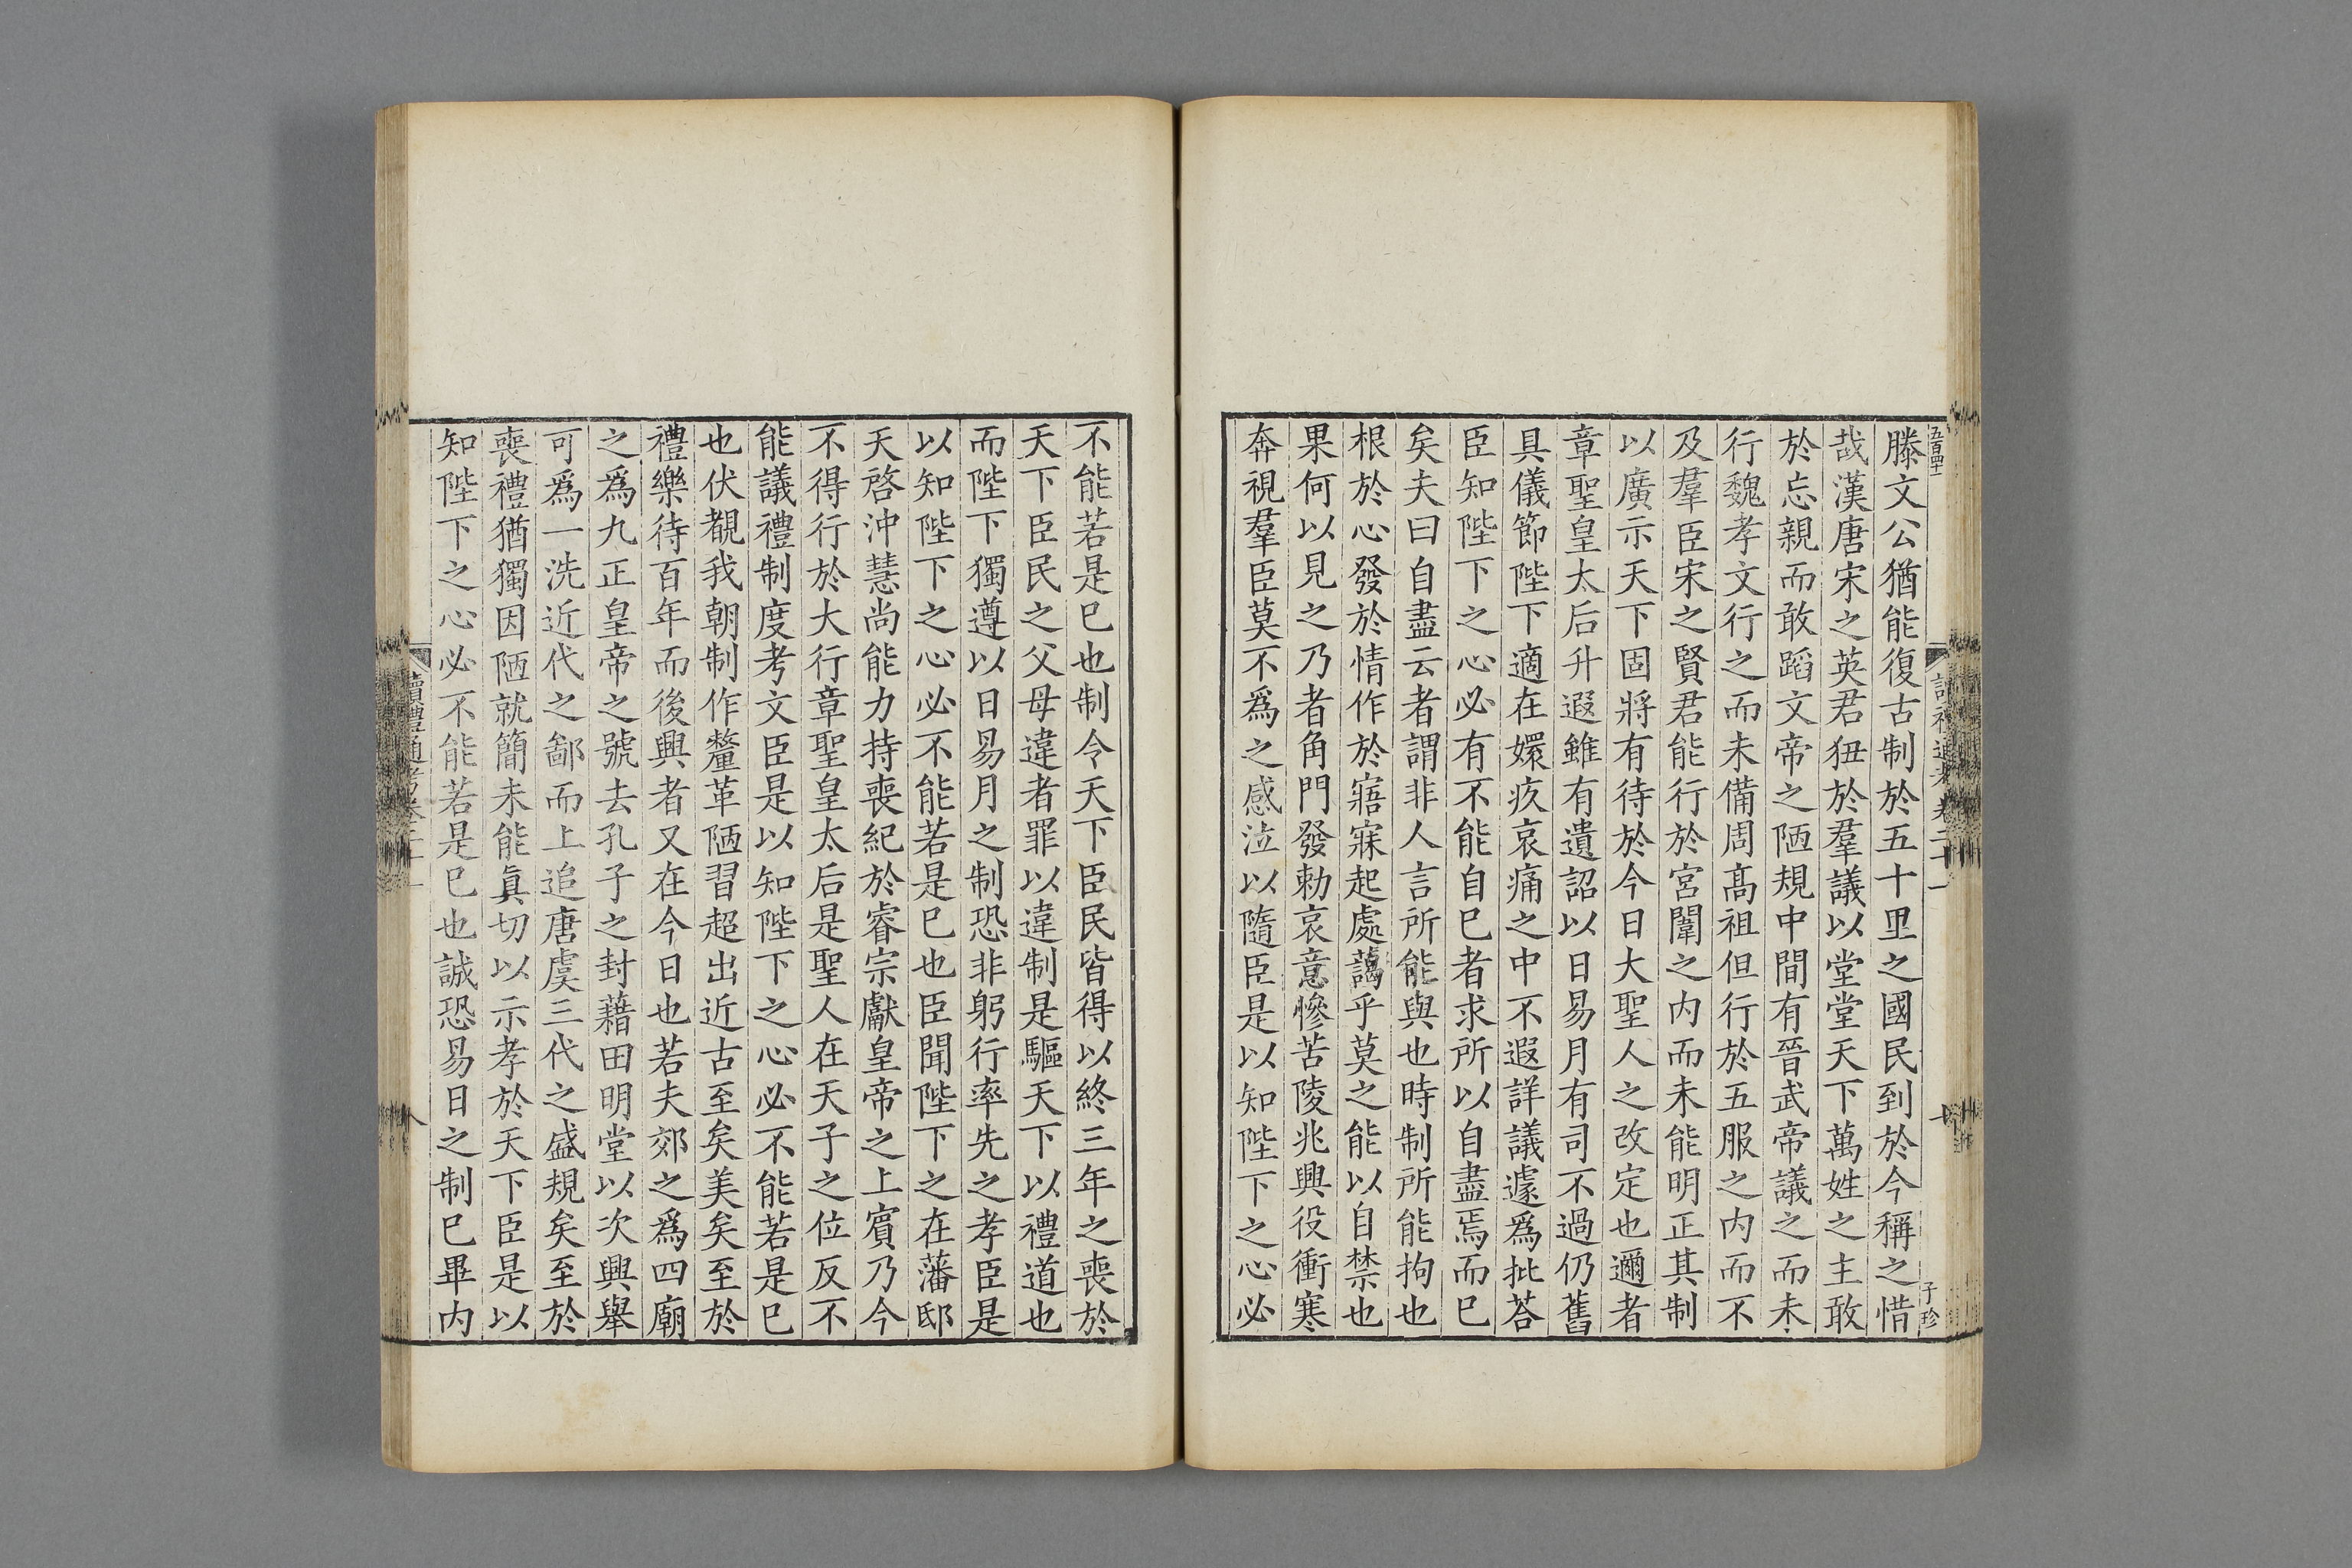 五百四十一
滕文公猶能復古制於五十里之國民到於今稱之惜
哉漢唐宋之英君狃於羣議以堂堂天下萬姓之主敢
於忘親而敢蹈文帝之陋規中間有晉武帝議之而未
行魏孝文行之而未備周髙祖但行於五服之内而不
及羣臣宋之賢君能行於宮闈之内而未能明正其制
以廣示天下固將有待於今日大聖人之改定也邇者
章聖皇太后升遐雖有遺詔以日易月有司不過仍舊
具儀節陛下適在嬛疚哀痛之中不遐詳議遽爲批荅
臣知陛下之心必有不能自已者求所以自盡焉而已
矣夫曰自盡云者謂非人言所能與也時制所能拘也
根於心發於情作於寤寐起處藹乎莫之能以自禁也
果何以見之乃者角門發勅哀意慘苦陵兆興役衝寒
奔視羣臣莫不爲之感泣以隨臣是以知陛下之心必
子珍
不能若是已也制令天下臣民皆得以終三年之喪於
天下臣民之父母違者罪以違制是驅天下以禮道也
而陛下獨遵以日易月之制恐非躬行率先之孝臣是
以知陛下之心必不能若是已也臣聞陛下之在藩邸
天啓沖慧尚能力持喪紀於睿宗獻皇帝之上賓乃今
不得行於大行章聖皇太后是聖人在天子之位反不
能議禮制度考文臣是以知陛下之心必不能若是已
也伏覩我朝制作釐革陋習超出近古至矣美矣至於
禮樂待百年而後興者又在今日也若夫郊之爲四廟
之爲九正皇帝之號去孔子之封藉田明堂以次興舉
可爲一洗近代之鄙而上追唐虞三代之盛規矣至於
喪禮猶獨因陋就簡未能眞切以示孝於天下臣是以
知陛下之心必不能若是已也誠恐易日之制已畢内
讀禮通考卷二十一